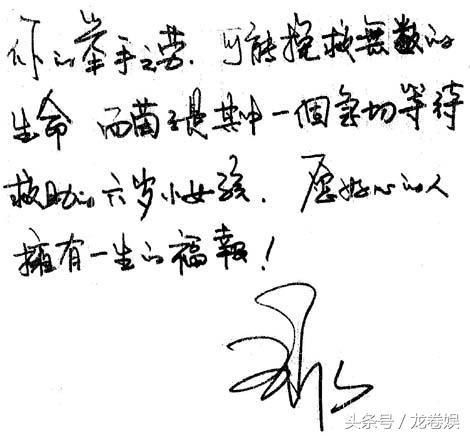 你的举手之劳.可能挽救無數的
生命 而茵子是其中一個急切等待
救助的六岁小女孩.愿好心的人
擁有一生的福報！
头条号/龙卷娱